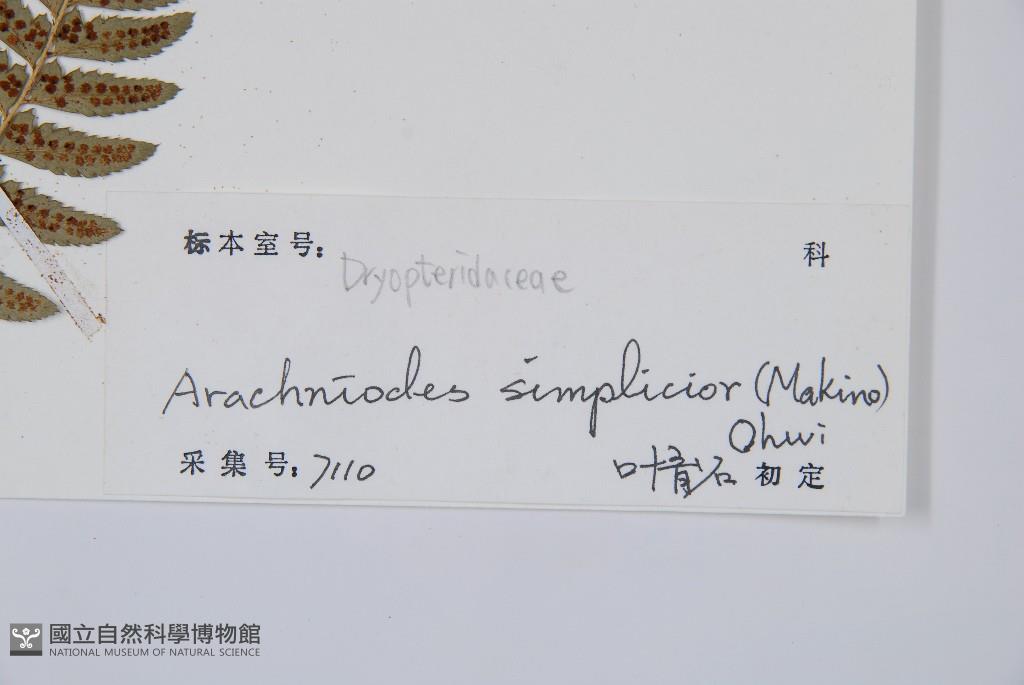 标本室号: 科
Dryopteridaceae
Arachniodes simplicior (Makino)
Ohwi
采集号: 7110 叶育石 初定
國立自然科學博物館
NATIONAL MUSEUM OF NATURAL SCIENCE